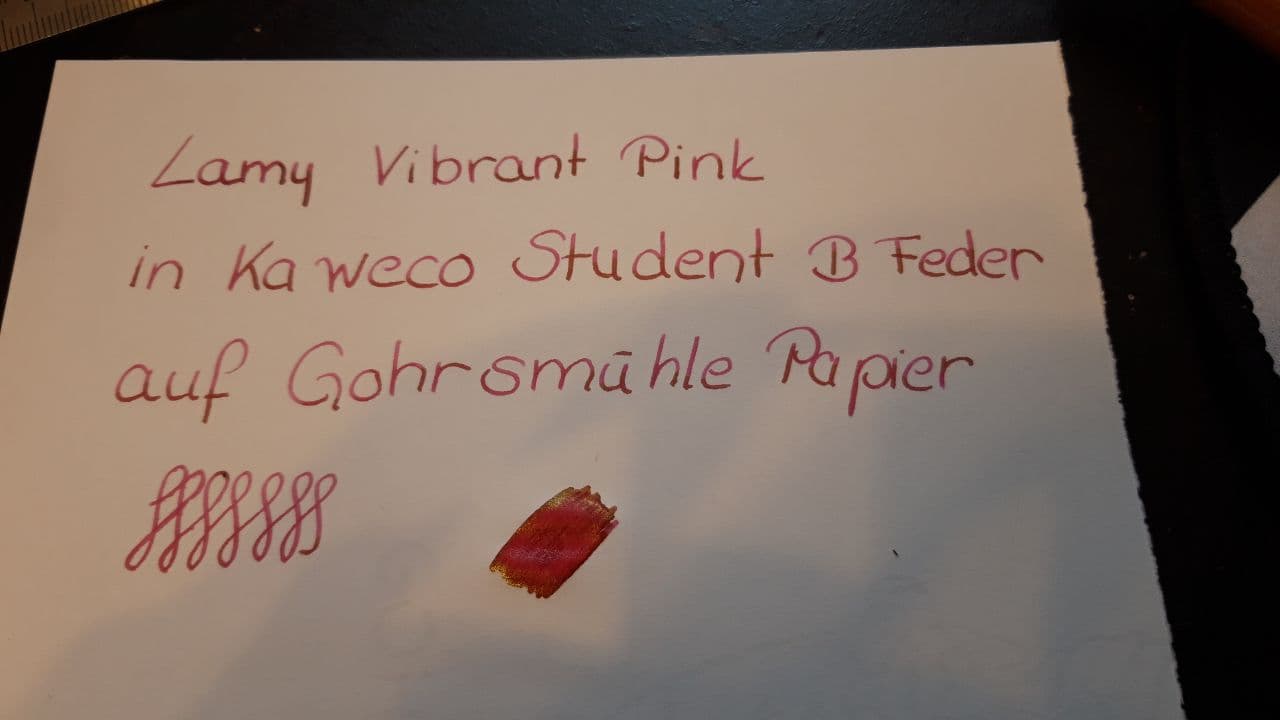 Lamy Vibrant Pink
in Kaweco Student B Feder
auf Gohrsmühle Papier